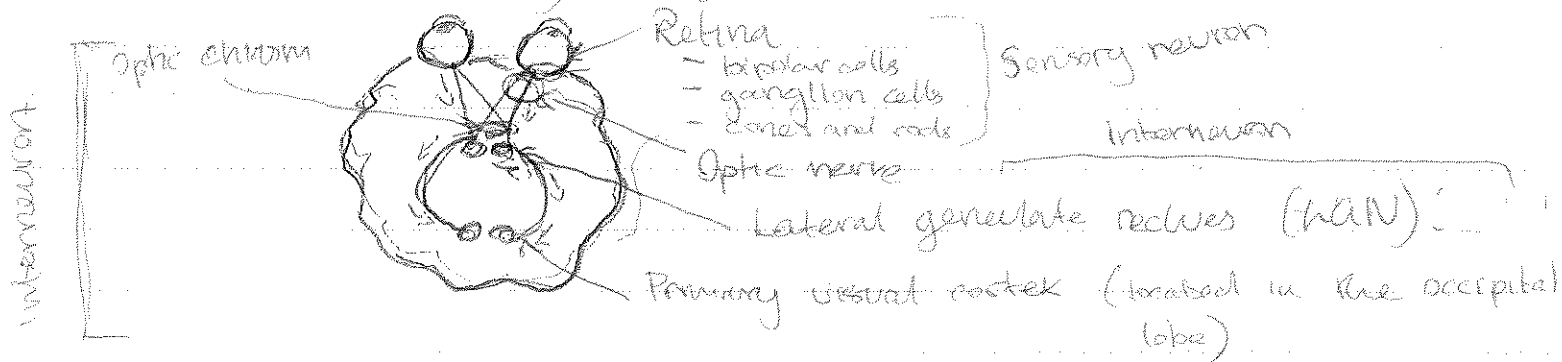 Optic chiasm
Retina
- bipolar cells
- ganglion cells
- cones and rods
Sensory neuron
Interneuron
Optic nerve
Lateral geniculate nucleus (LGN)
Primary visual cortek (located in the occipital
lobe)
Interneuron